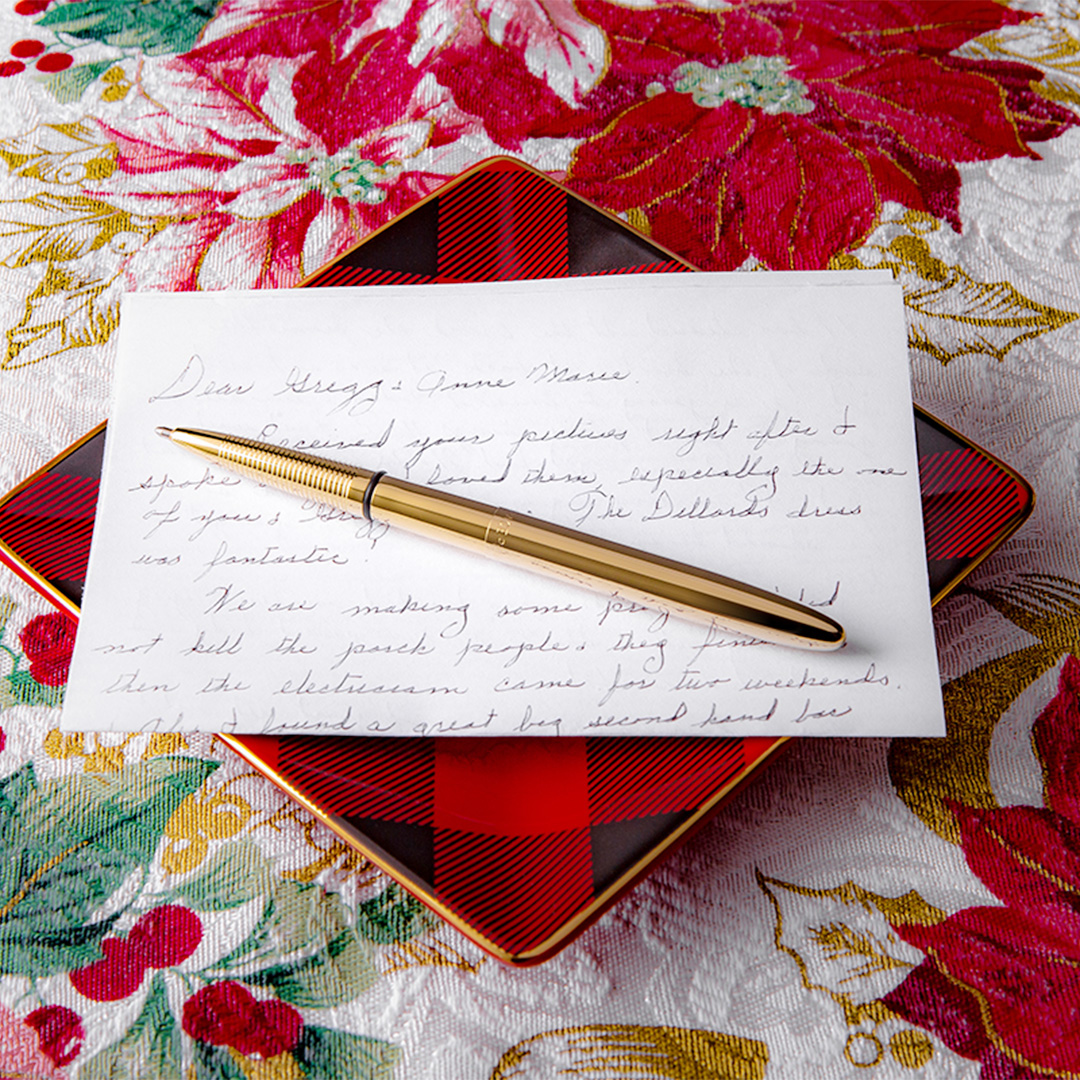 Dear Gregg & Anne Marie
Received your pictures right after I
spoke loved them, especially the one
of you & Gregg The Dillards dress
was fantastic!
We are making some
not kill the porch people & they
then the electrician came for two weekends.
I found a great big second hand bar